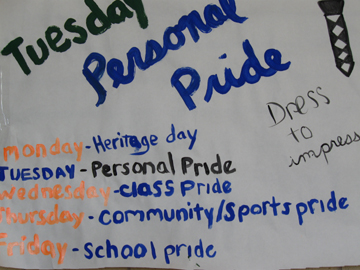 Tuesday
Personal
Pride
Dress
to
impress
monday - Heritage day
TUESDAY - Personal Pride
wednesday - class Pride
Thursday - community/sports pride
Friday - school pride